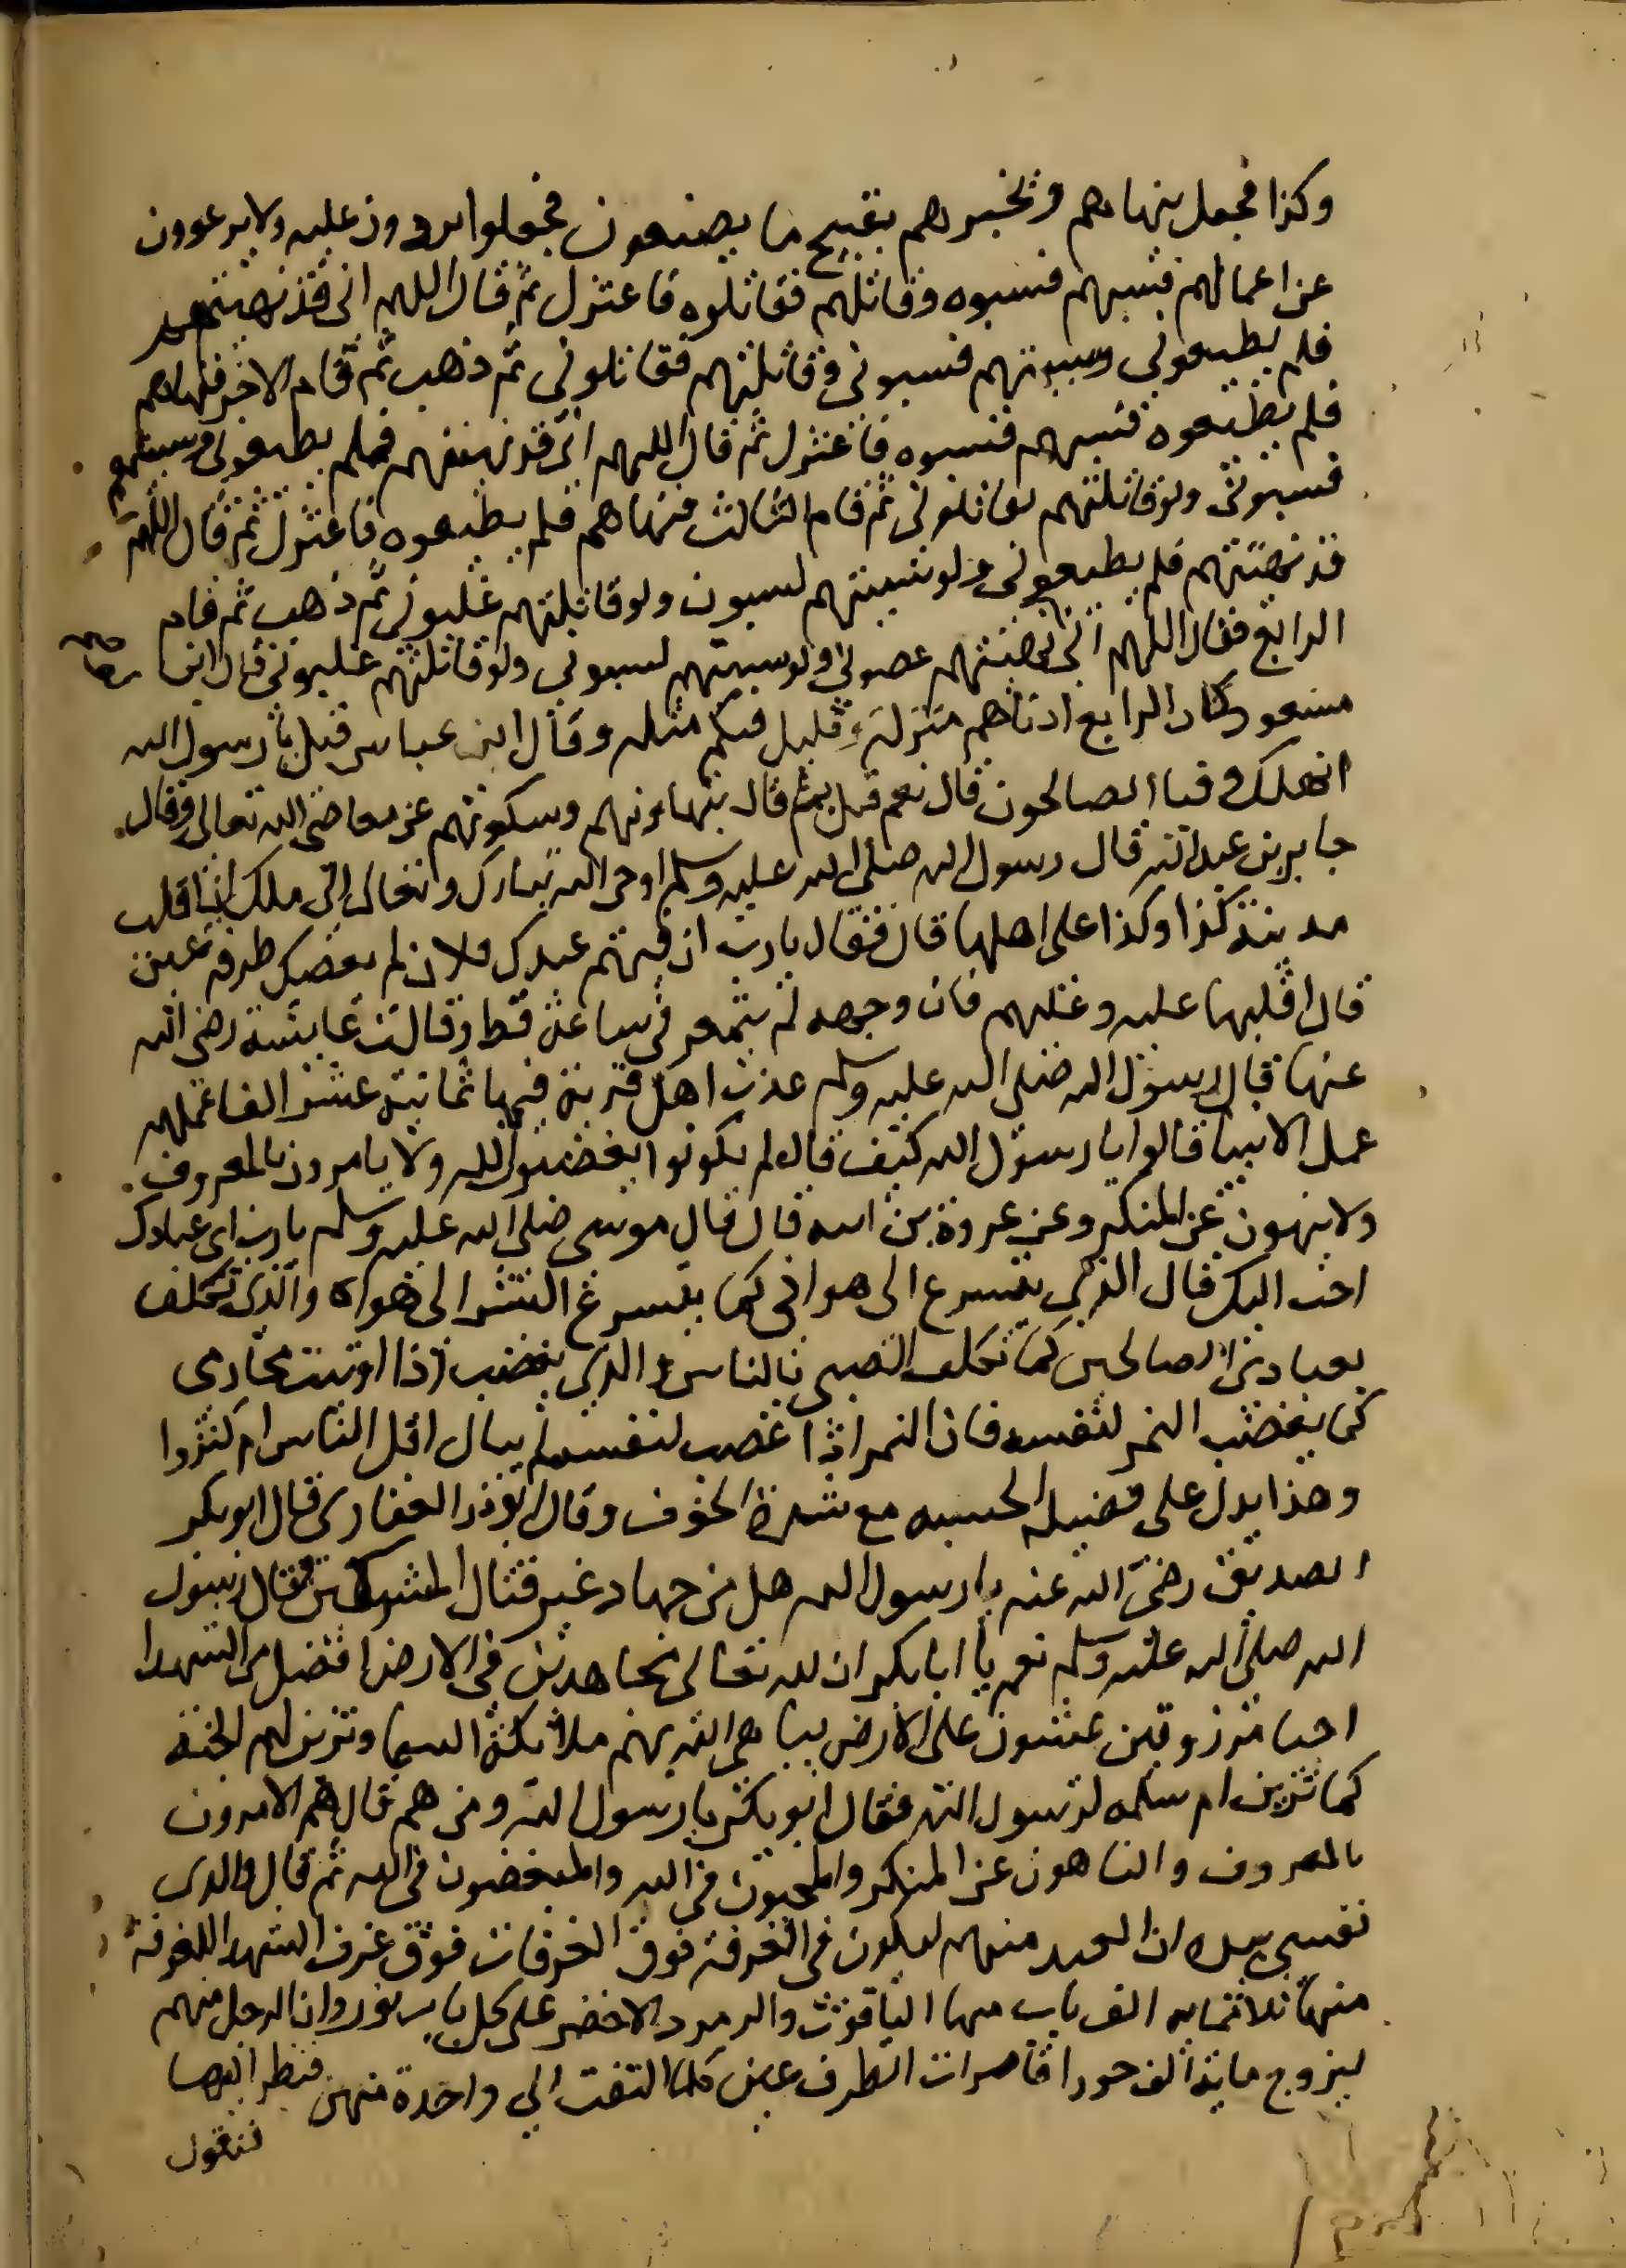 وكذا فجعل ينهاهم ويخبرهم بقبيح ما يصنعون فجعلوا يردون عليه ولا يرعوون
عن اعمالهم فسبهم فسبوه وقاتلهم فقاتلوه فاعتزل ثم قال اللهم انى قد نهيتهم
فلم يطيعونى وسببتهم فسبونى وقاتلتهم فقاتلونى ثم ذهب ثم قام الاخر فنهاهم
فلم يطيعوه فسبهم فسبوه فاعتزل ثم قال اللهم انى قد نهيتهم فلم يطيعونى وسببتهم
فسبونى ولو قاتلتهم لقاتلونى ثم قام الثالث فنهاهم فلم يطيعوه فاعتزل ثم قال اللهم
قد نهيتهم فلم يطيعونى ولو سببتهم لسبونى ولو قاتلتهم غلبونى ثم ذهب ثم قام
الرابع فقال اللهم انى نهيتهم عصونى ولو سببتهم لسبونى ولو قاتلتهم غلبونى قال ابن
مسعود كان الرابع ادناهم منزلة وقليل فيكم مثله وقال ابن عباس قيل يا رسول الله
اتهلك وفينا الصالحون قال نعم قيل بم قال بتهاونهم وسكوتهم عن معاصى الله تعالى وقال
جابر بن عبد الله قال رسول الله صلى الله عليه وسلم اوحى الله تبارك وتعالى الى ملك ان اقلب
مدينة كذا وكذا على اهلها قال فقال يا رب ان فيهم عبدك فلان لم يعصك طرفة عين
قال اقلبها عليه وعليهم فان وجهه لم يتمعر فى ساعة قط وقالت عايشة رضى الله
عنها قال رسول الله صلى الله عليه وسلم عذب اهل قرية فيها ثمانية عشر الفا عملهم
عمل الانبيا قالوا يا رسول الله كيف قال لم يكونوا يغضبون لله ولا يامرون بالمعروف
ولا ينهون عن المنكر وعن عروة عن ابيه قال قال موسى صلى الله عليه وسلم يا رب اى عبادك
احب اليك قال الذى يتسرع الى هواى كما يتسرع النسر الى هواه والذى تكلف
بعبادى الصالحين كما تكلف الصبى بالناس والذى يغضب اذا اوتيت محارمى
كما يغضب النمر لنفسه فان النمر اذا غضب لنفسه لم يبال اقل الناس ام كثروا
وهذا يدل على فضيلة الحسبه مع شدة الخوف وقال ابو ذر الغفارى قال ابو بكر
الصديق رضى الله عنه يا رسول الله هل من جهاد غير قتال المشركين فقال رسول
الله صلى الله عليه وسلم نعم يا ابا بكر ان لله تعالى مجاهدين فى الارض افضل من الشهدا
احيا مرزوقين يمشون على الارض يباهى الله بهم ملائكة السما وتزين لهم الجنة
كما تزين ام سلمه لرسول الله فقال ابو بكر يا رسول الله ومن هم قال هم الامرون
بالمعروف والناهون عن المنكر والمحبون فى الله والمبغضون فى الله ثم قال والذى
نفسى بيده ان العبد منهم ليكون فى الغرفة فوق الغرفات فوق غرف الشهدا للغرفة
منها ثلاثمايه الف باب منها الياقوت والزمرد الاخضر على كل باب نور وان الرجل منهم
ليزوج ماية الف حورا قاصرات الطرف عين كلما التفت الى واحدة منهن فنظر اليها
فتقول